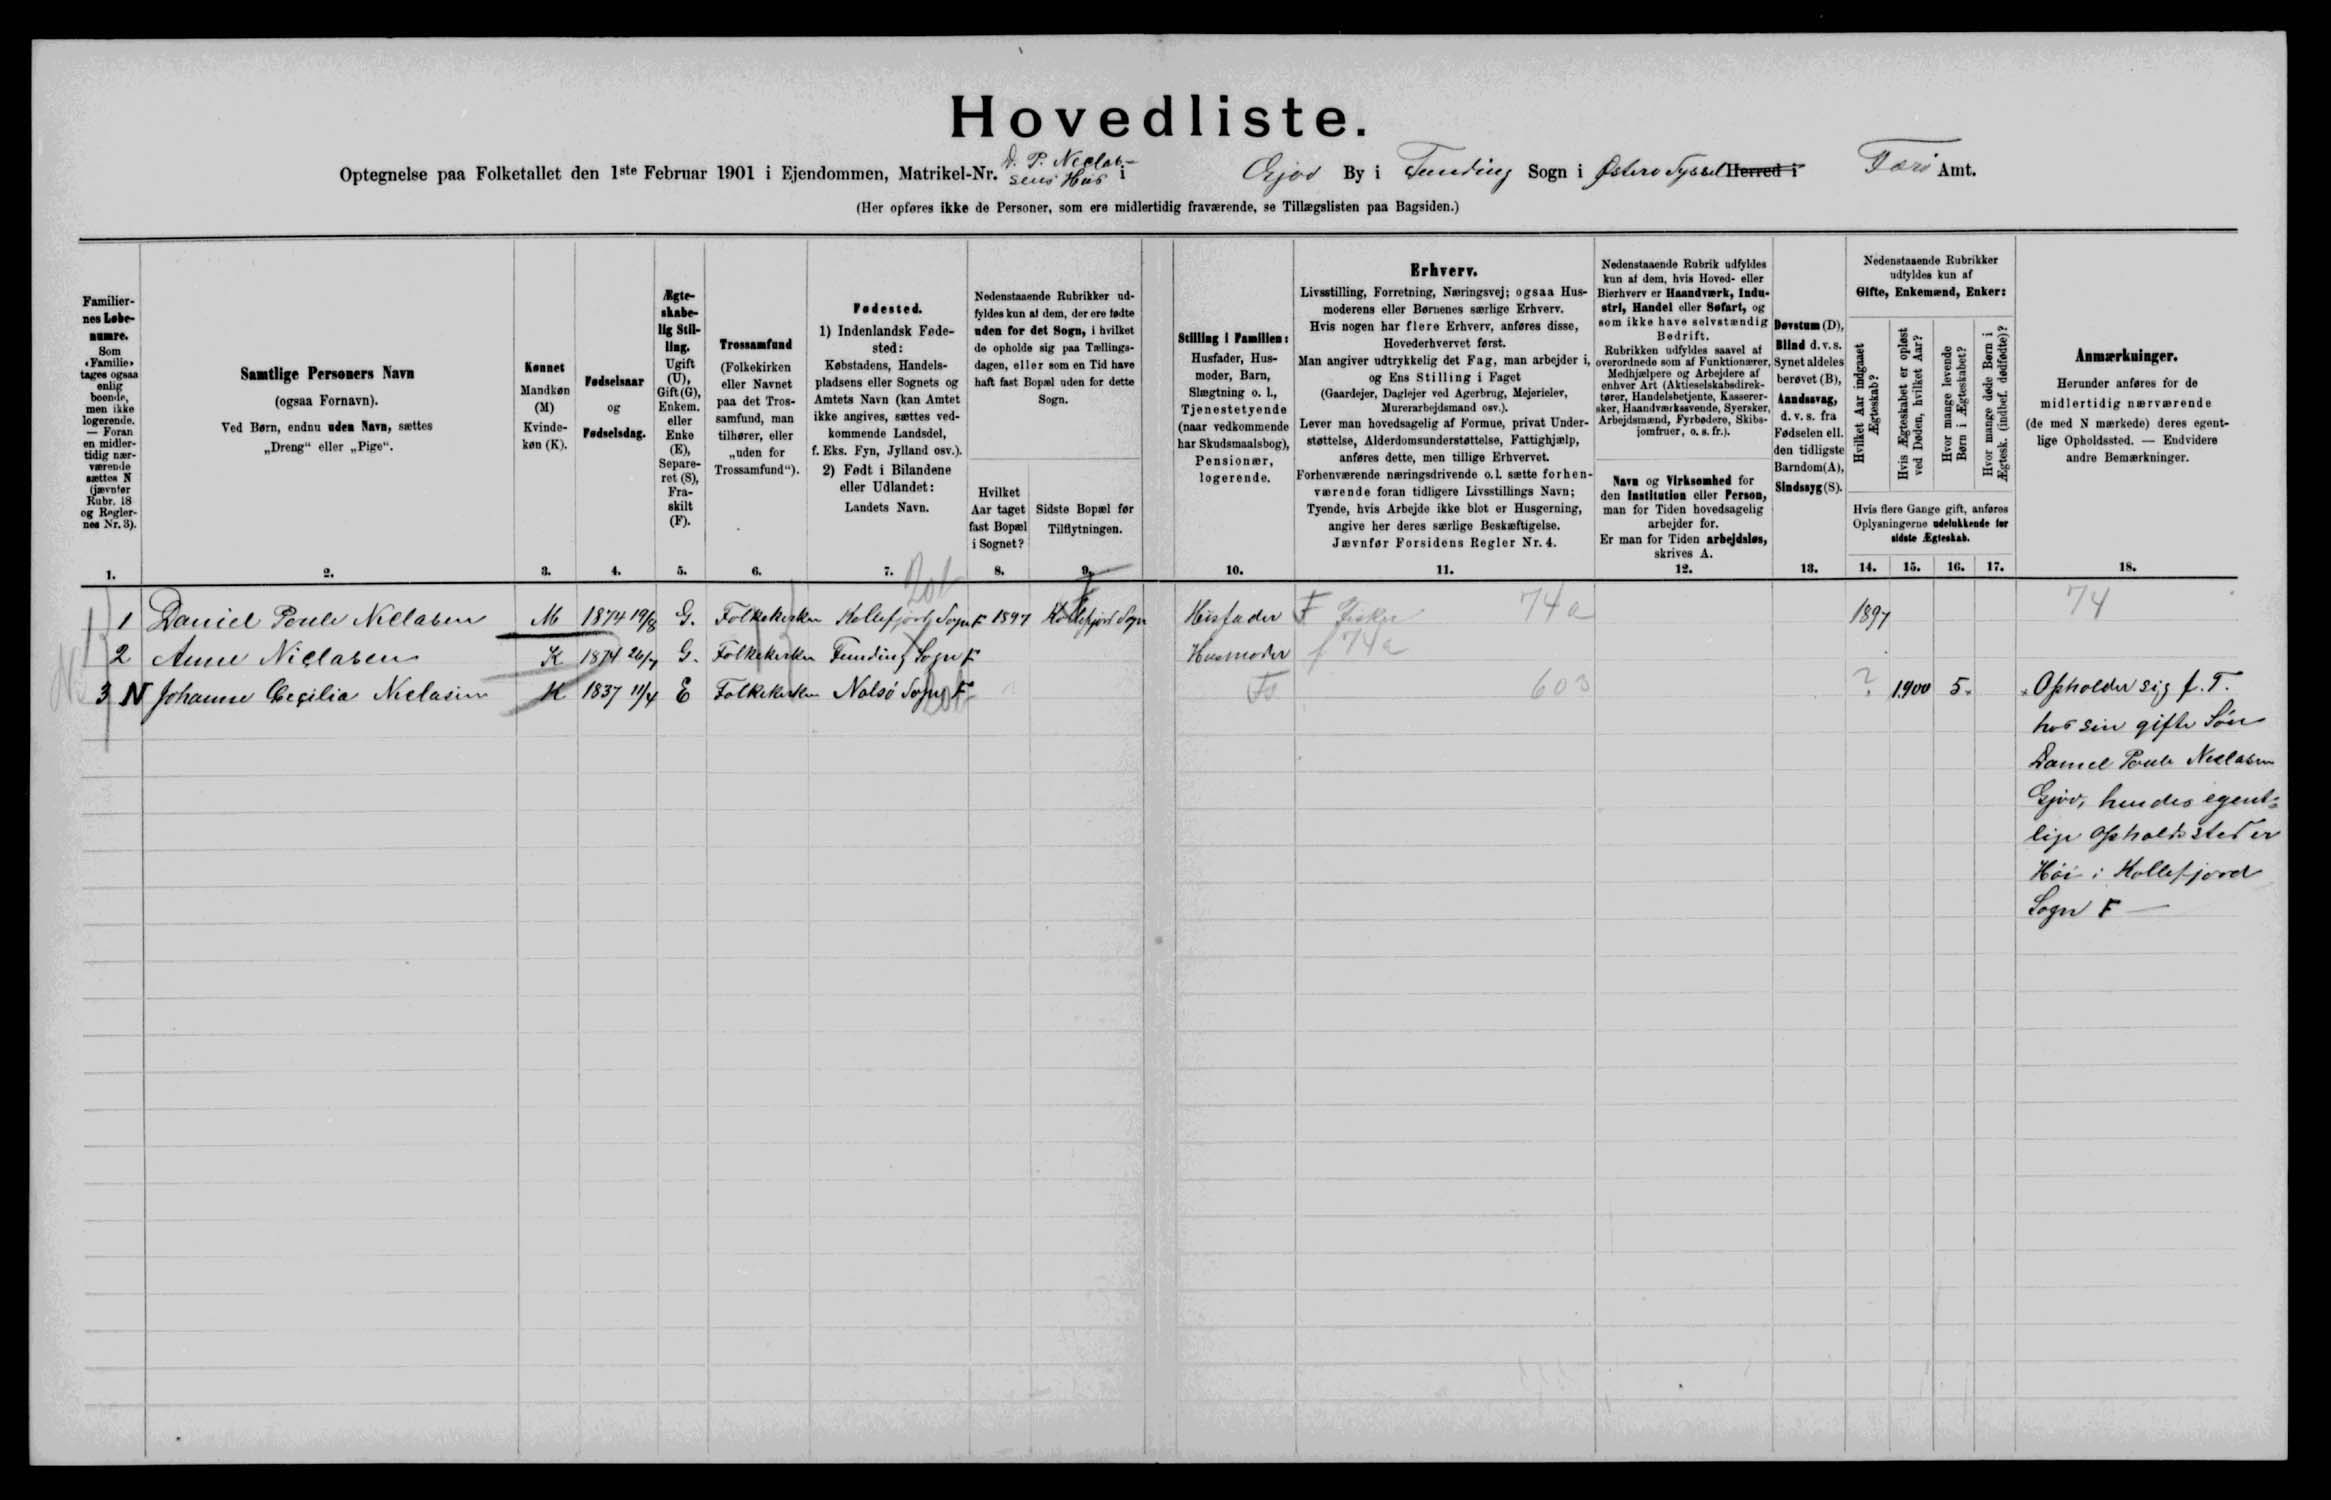 Hovedliste.
Optegnelse paa Folketallet den 1ste Februar 1901 i Ejendommen, Matrikel-Nr. D. P. Niclas- i Gjov By i Funding Sogn i Østerø Syssel Herred i Færø Amt.
sens Hus
(Her opføres ikke de Personer, som ere midlertidig fraværende, se Tillægslisten paa Bagsiden.)
Familier-
nes Løbe-
numre.
Som
«Familie»
tages ogsaa
enlig
boende,
men ikke
logerende.
— Foran
en midler-
tidig nær-
værende
sættes N
(jævnfør
Rubr. 18
og Regler-
nes Nr. 3).
1.
Samtlige Personers Navn
(ogsaa Fornavn).
Ved Børn, endnu uden Navn, sættes
„Dreng“ eller „Pige“.
2.
Kønnet
Mandkøn
(M)
Kvinde-
køn (K).
3.
Fødselsaar
og
Fødselsdag.
4.
Ægte-
skabe-
lig Stil-
ling.
Ugift
(U),
Gift (G),
Enkem.
eller
Enke
(E),
Separe-
ret (S),
Fra-
skilt
(F).
5.
Trossamfund
(Folkekirken
eller Navnet
paa det Tros-
samfund, man
tilhører, eller
„uden for
Trossamfund“).
6.
Fødested.
1) Indenlandsk Føde-
sted:
Købstadens, Handels-
pladsens eller Sognets og
Amtets Navn (kan Amtet
ikke angives, sættes ved-
kommende Landsdel,
f. Eks. Fyn, Jylland osv.).
2) Født i Bilandene
eller Udlandet:
Landets Navn.
7.
Nedenstaaende Rubrikker ud-
fyldes kun af dem, der ere fødte
uden for det Sogn, i hvilket
de opholde sig paa Tællings-
dagen, eller som en Tid have
haft fast Bopæl uden for dette
Sogn.
Hvilket
Aar taget
fast Bopæl
i Sognet?
8.
Sidste Bopæl før
Tilflytningen.
9.
Stilling i Familien:
Husfader, Hus-
moder, Barn,
Slægtning o. l.,
Tjenestetyende
(naar vedkommende
har Skudsmaalsbog),
Pensionær,
logerende.
10.
Erhverv.
Livsstilling, Forretning, Næringsvej; ogsaa Hus-
moderens eller Børnenes særlige Erhverv.
Hvis nogen har flere Erhverv, anføres disse,
Hovederhvervet først.
Man angiver udtrykkelig det Fag, man arbejder i,
og Ens Stilling i Faget
(Gaardejer, Daglejer ved Agerbrug, Mejerielev,
Murerarbejdsmand osv.).
Lever man hovedsagelig af Formue, privat Under-
støttelse, Alderdomsunderstøttelse, Fattighjælp,
anføres dette, men tillige Erhvervet.
Forhenværende næringsdrivende o.l. sætte forhen-
værende foran tidligere Livsstillings Navn;
Tyende, hvis Arbejde ikke blot er Husgerning,
angive her deres særlige Beskæftigelse.
Jævnfør Forsidens Regler Nr. 4.
11.
Nedenstaaende Rubrik udfyldes
kun af dem, hvis Hoved- eller
Bierhverv er Haandværk, Indu-
stri, Handel eller Søfart, og
som ikke have selvstændig
Bedrift.
Rubrikken udfyldes saavel af
overordnede som af Funktionærer,
Medhjælpere og Arbejdere af
enhver Art (Aktieselskabsdirek-
tører, Handelsbetjente, Kasserer-
sker, Haandværkssvende, Syersker,
Arbejdsmænd, Fyrbødere, Skibs-
jomfruer, o. s. fr.).
Navn og Virksomhed for
den Institution eller Person,
man for Tiden hovedsagelig
arbejder for.
Er man for Tiden arbejdsløs,
skrives A.
12.
Døvstum (D),
Blind d.v.s.
Synet aldeles
berøvet (B),
Aandssvag,
d. v. s. fra
Fødselen ell.
den tidligste
Barndom (A),
Sindssyg (S).
13.
Nedenstaaende Rubrikker
udfyldes kun af
Gifte, Enkemænd, Enker:
Hvilket Aar indgaaet
Ægteskab?
Hvis Ægteskabet er opløst
ved Døden, hvilket Aar?
Hvor mange levende
Børn i Ægteskabet?
Hvor mange døde Børn i
Ægtesk. (indbef. dødfødte)?
Hvis flere Gange gift, anføres
Oplysningerne udelukkende for
sidste Ægteskab.
14. 15. 16. 17.
Anmærkninger.
Herunder anføres for de
midlertidig nærværende
(de med N mærkede) deres egent-
lige Opholdssted. — Endvidere
andre Bemærkninger.
18.
1 Daniel Poule Niclasen M 1874 19/8 G. Folkekirken Kollefjord Sogn F 1897 Kollefjord Sogn Husfader F Fisker 74a 1897 74
2 Anne Niclasen K 1874 26/7 G. Folkekirken Funding Sogn F Husmoder f 74a
3 N Johanne Cecilia Niclasen K 1837 11/4 E Folkekirken Nolsø Sogn F 603 ? 1900 5.
Opholder sig p. T.
hos sin gifte Søn
Daniel Poule Niclasen
Gjov, hendes egent-
lige Opholdssted er
Hói i Kollefjord
Sogn F —